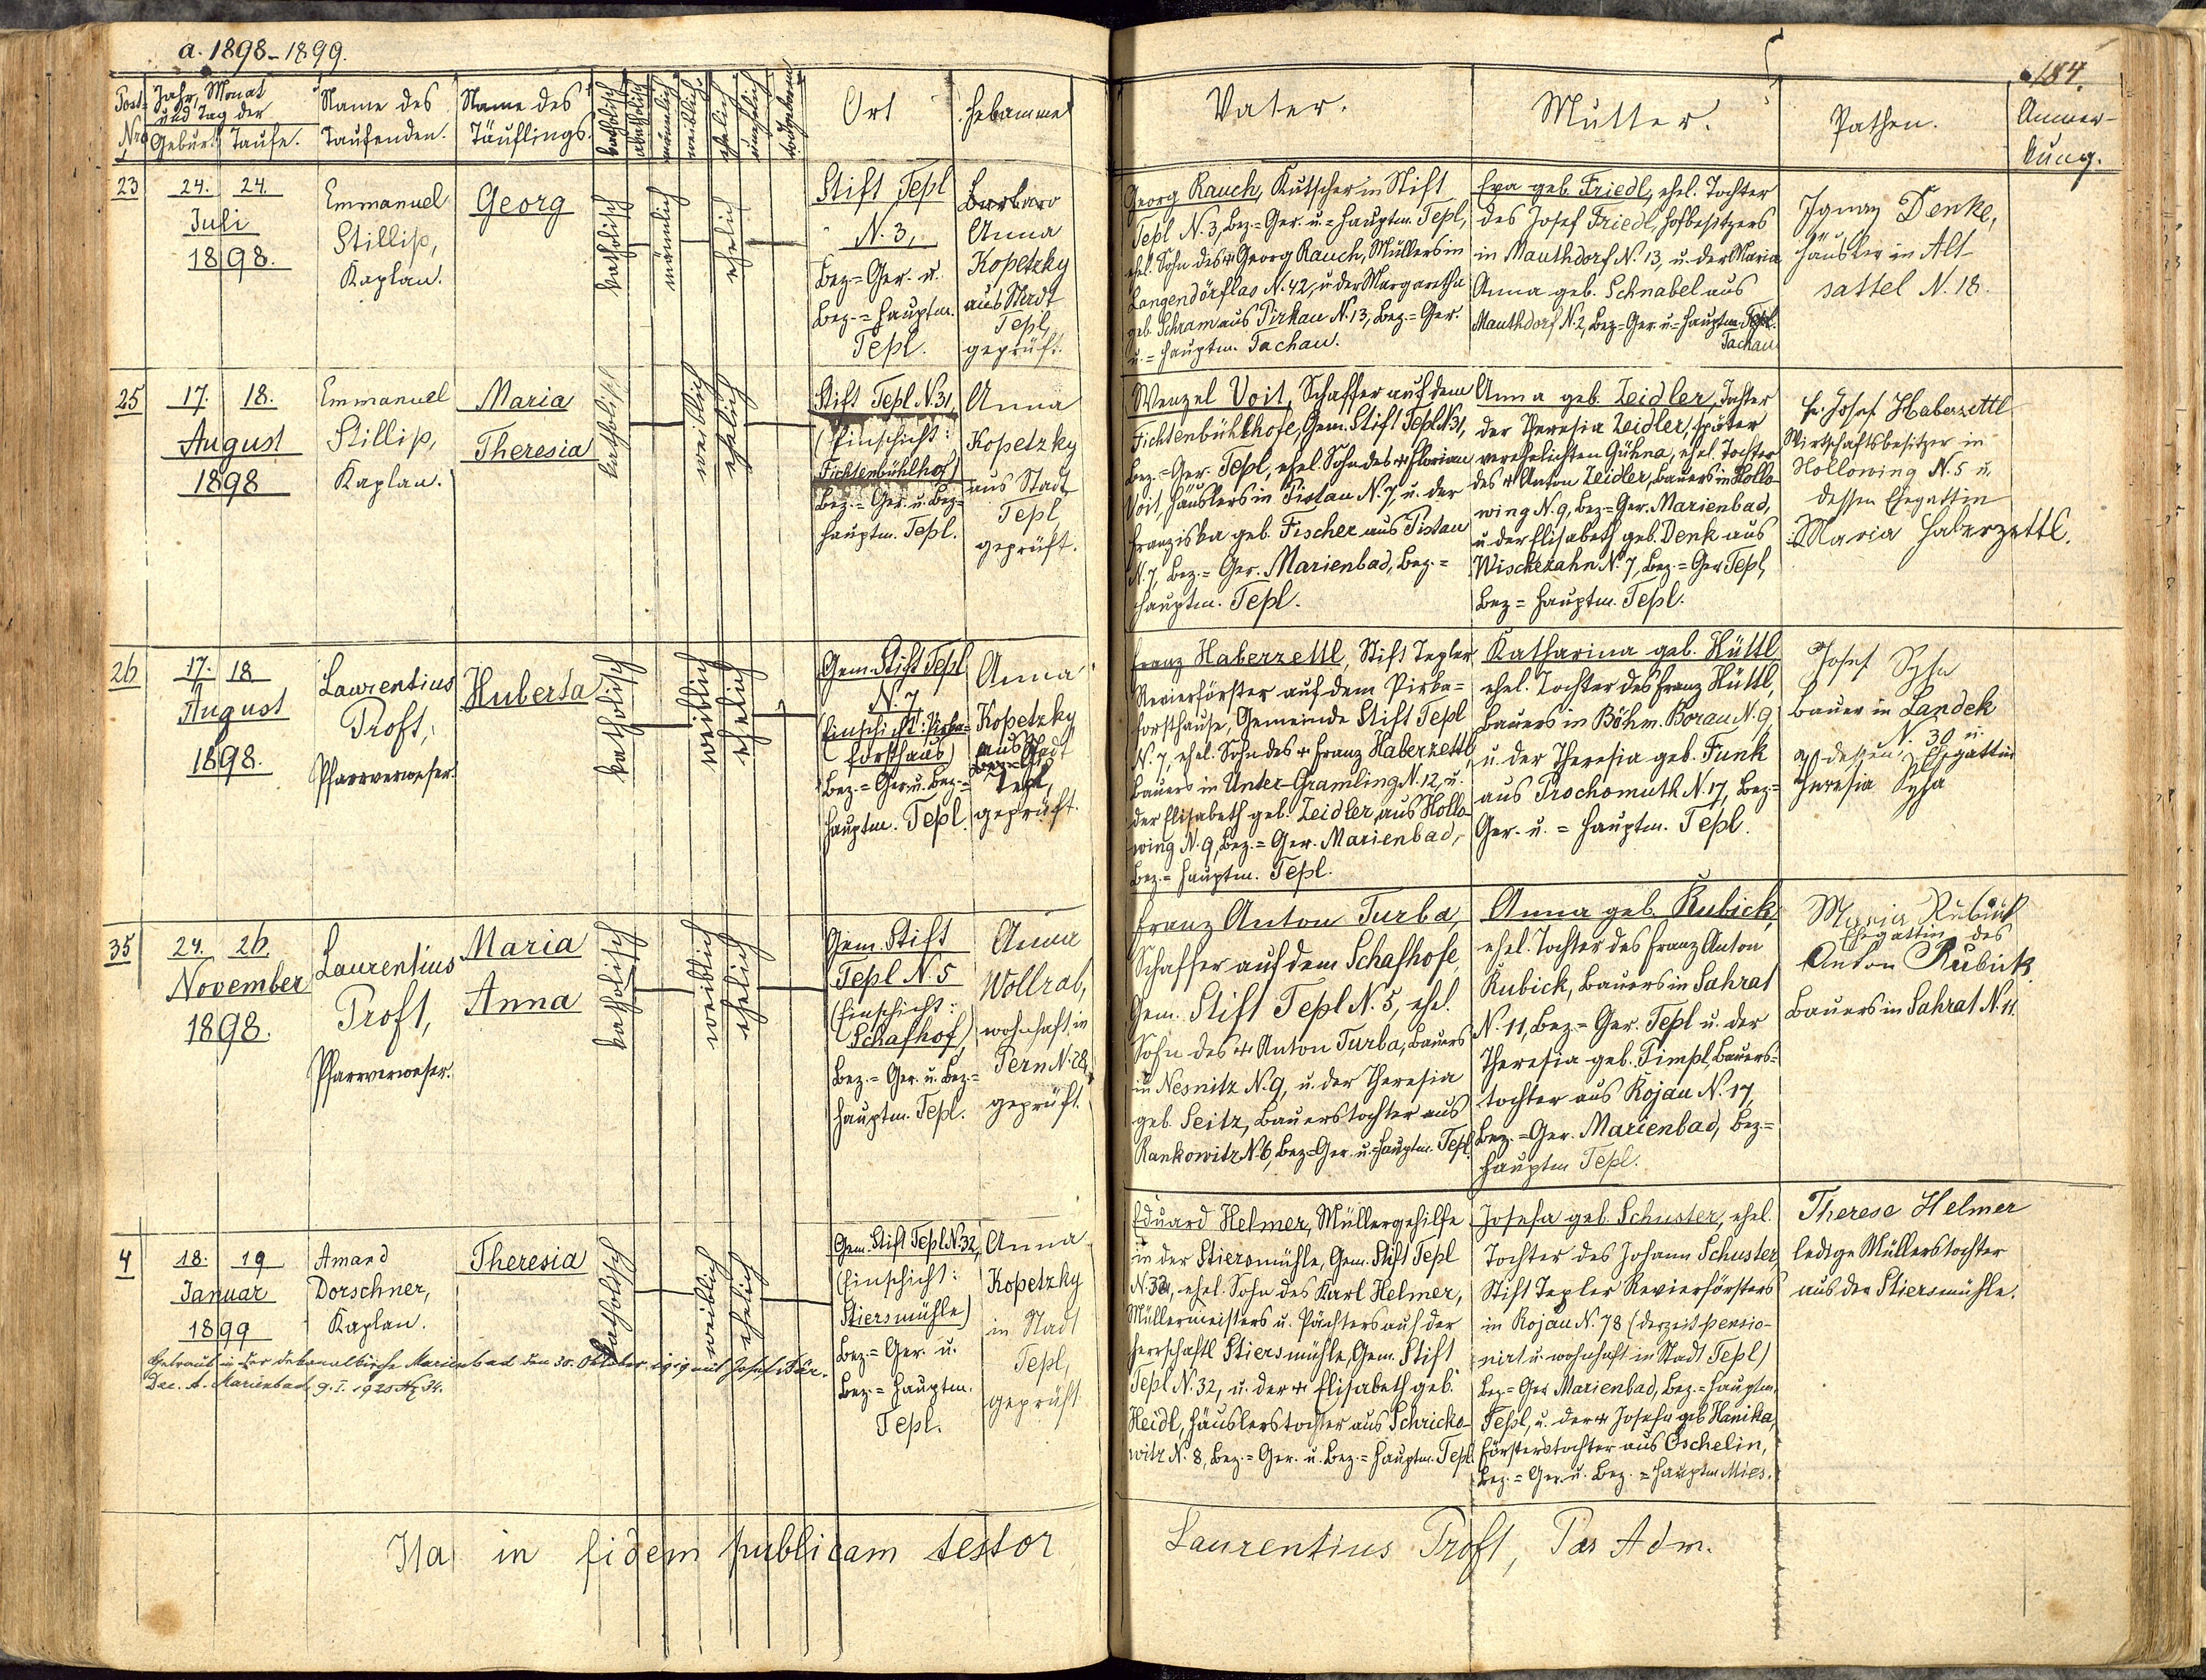 a. 1898–1899.
184.
Post-
Nro
Jahr, Monat
und Tag der
Geburt Taufe.
Name des
Taufenden.
Name des
Täuflings.
katholisch
akatholisch
männlich
weiblich
ehelich
unehelich
todtgeboren
Ort
Hebamme
Vater.
Mutter.
Pathen.
Anmer-
kung.
23
24. 24.
Juli
1898.
Emmanuel
Stillip,
Kaplan.
Georg
katholisch
männlich
ehelich
Stift Tepl
N. 3,
Bez.=Ger. u.
Bez.=Hauptm.
Tepl.
Barbara
Anna
Kopetzky
aus Stadt
Tepl,
geprüft.
Georg Rauch, Kutscher in Stift
Tepl N. 3, Bez.=Ger. u.=Hauptm. Tepl,
ehel. Sohn des + Georg Rauch, Müllers in
Langendörflas N. 42, u. der Margaretha
geb. Schram aus Pirkau N. 13, Bez.=Ger.
u.=Hauptm. Tachau.
Eva geb. Friedl, ehel. Tochter
des Josef Friedl, Hofbesitzers
in Mauthdorf N. 13, u. der Maria
Anna geb. Schnabel aus
Mauthdorf N. 2, Bez.=Ger. u.=Hauptm. Tepl.
Tachau
Ignaz Denke,
Häusler in Alt-
sattel N. 18.
25
17. 18.
August
1898
Emmanuel
Stillip,
Kaplan.
Maria
Theresia
katholisch
weiblich
ehelich
Stift Tepl N. 31,
(Einschicht:
Fichtenbühlhof)
Bez.=Ger. u. Bez.=
Hauptm. Tepl.
Anna
Kopetzky
aus Stadt
Tepl,
geprüft.
Wenzel Voit, Schaffer auf dem
Fichtenbühlhofe, Gem. Stift Tepl N. 31,
Bez.=Ger. Tepl, ehel. Sohn des + Florian
Voit, Häuslers in Pistau N. 7, u. der
Franziska geb. Fischer aus Pistau
N. 7, Bez.=Ger. Marienbad, Bez.=
Hauptm. Tepl.
Anna geb. Zeidler, Tochter
der Theresia Zeidler, später
verehelichten Gühna, ehel. Tochter
des + Anton Zeidler, Bauers in Hollo-
wing N. 9, Bez.=Ger. Marienbad,
u. der Elisabeth geb. Denk aus
Wischezahn N. 7, Bez.=Ger. Tepl,
Bez.=Hauptm. Tepl.
Fr. Josef Haberzettl
Wirtschaftsbesitzer in
Hollowing N. 5 u.
dessen Ehegattin
Maria Haberzettl.
26
17. 18
August
1898.
Laurentius
Proft,
Pfarrverweser.
Huberta
katholisch
weiblich
ehelich
Gem. Stift Tepl
N. 7
(Einschicht: Pirka-
forsthaus)
Bez.=Ger. u. Bez.=
Hauptm. Tepl.
Anna
Kopetzky
aus Stadt
Tepl,
geprüft.
Franz Haberzettl, Stift Tepler
Revierförster auf dem Pirka=
forsthause, Gemeinde Stift Tepl
N. 7, ehel. Sohn des + Franz Haberzettl,
Bauers in Unter-Gramling N. 12, u.
der Elisabeth geb. Zeidler aus Hollo-
wing N. 9, Bez.=Ger. Marienbad,
Bez.=Hauptm. Tepl.
Katharina geb. Hüttl
ehel. Tochter des Franz Hüttl,
Bauers in Böhm. Borau N. 9,
u. der Theresia geb. Funk
aus Prochomuth N. 17, Bez.=
Ger. u.=Hauptm. Tepl.
Josef Syha
Bauer in Landek
N. 30 u.
dessen Ehegattin
Theresia Syha
35
24. 26.
November
1898.
Laurentius
Proft,
Pfarrverweser.
Maria
Anna
katholisch
weiblich
ehelich
Gem. Stift
Tepl N. 5
(Einschicht:
Schafhof)
Bez.=Ger. u. Bez.=
Hauptm. Tepl.
Anna
Wollrab,
wohnhaft in
Pern N. 28,
geprüft.
Franz Anton Turba,
Schaffer auf dem Schafhofe,
Gem. Stift Tepl N. 5, ehel.
Sohn des + Anton Turba, Bauers
in Nesnitz N. 9, u. der Theresia
geb. Seitz, Bauerstochter aus
Rankowitz N. 6, Bez=Ger. u.=Hauptm. Tepl.
Anna geb. Kubick,
ehel. Tochter des Franz Anton
Kubick, Bauers in Sahrat
N. 11, Bez.=Ger. Tepl u. der
Theresia geb. Timpl, Bauers=
tochter aus Rojau N. 17,
Bez.=Ger. Marienbad, Bez.=
Hauptm Tepl.
Maria Kubick
Ehegattin des
Anton Kubick
Bauers in Sahrat N. 11.
4
18. 19
Januar
1899
Amand
Dorschner,
Kaplan.
Theresia
katholisch
weiblich
ehelich
Gem. Stift Tepl N. 32,
(Einschicht:
Stiersmühle)
Bez.=Ger. u.
Bez.=Hauptm.
Tepl.
Anna
Kopetzky
in Stadt
Tepl,
geprüft
Eduard Helmer, Müllergehilfe
in der Stiersmühle, Gem. Stift Tepl
N. 32, ehel. Sohn des Karl Helmer,
Müllermeisters u. Pächters auf der
herrschaftl Stiersmühle, Gem. Stift
Tepl N. 32, u. der + Elisabeth geb.
Heidl, Häuslerstochter aus Schricko-
witz N. 8, Bez.=Ger. u. Bez.=Hauptm. Tepl.
Josefa geb. Schuster, ehel.
Tochter des Johann Schuster,
Stift Tepler Revierförsters
in Rojau N. 78 (derzeit pensio-
nirt u. wohnhaft in Stadt Tepl)
Bez.=Ger. Marienbad, Bez.=Hauptm.
Tepl, u. der + Josefa geb Hanika,
Förstertochter aus Oschelin,
Bez.=Ger. u. Bez.=Hauptm Mies.
Therese Helmer
ledige Müllerstochter
aus der Stiersmühle.
Getraut in der Dekanalkirche Marienbad den 30. Oktober 1919 mit Josef
Dec. A. Marienbad 9. I. 1920 34.
Ita in fidem publicam testor
Laurentius Proft, Par Adm.